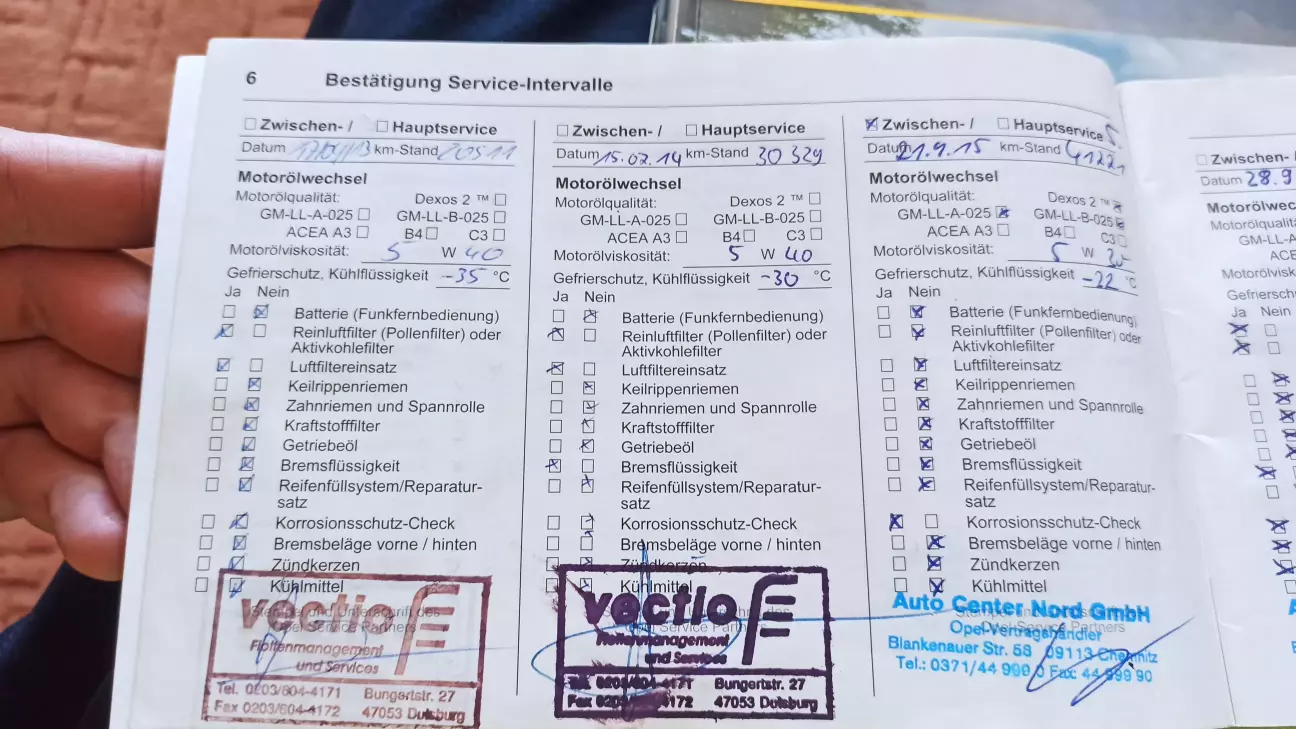 6 Bestätigung Service-Intervalle
Zwischen-/ Hauptservice
Datum km-Stand 20511
Motorölwechsel
Motorölqualität: Dexos 2 ™
GM-LL-A-025 GM-LL-B-025
ACEA A3 B4 C3
Motorölviskosität: 5 W 40
Gefrierschutz, Kühlflüssigkeit -35 °C
Ja Nein
Batterie (Funkfernbedienung)
Reinluftfilter (Pollenfilter) oder
Aktivkohlefilter
Luftfiltereinsatz
Keilrippenriemen
Zahnriemen und Spannrolle
Kraftstofffilter
Getriebeöl
Bremsflüssigkeit
Reifenfüllsystem/Reparatur-
satz
Korrosionsschutz-Check
Bremsbeläge vorne / hinten
Zündkerzen
Kühlmittel
Stempel und Unterschrift des
Opel Service Partners
vectio
Flottenmanagement
und Services
Tel. 0203/604-4171 Bungertstr. 27
Fax 0203/604-4172 47053 Duisburg
Zwischen-/ Hauptservice
Datum 15.07.14 km-Stand 30 329
Motorölwechsel
Motorölqualität: Dexos 2 ™
GM-LL-A-025 GM-LL-B-025
ACEA A3 B4 C3
Motorölviskosität: 5 W 40
Gefrierschutz, Kühlflüssigkeit -30 °C
Ja Nein
Batterie (Funkfernbedienung)
Reinluftfilter (Pollenfilter) oder
Aktivkohlefilter
Luftfiltereinsatz
Keilrippenriemen
Zahnriemen und Spannrolle
Kraftstofffilter
Getriebeöl
Bremsflüssigkeit
Reifenfüllsystem/Reparatur-
satz
Korrosionsschutz-Check
Bremsbeläge vorne / hinten
Zündkerzen
Kühlmittel
Service Partners
vectio
Flottenmanagement
und Services
Tel. 0203/604-4171 Bungertstr. 27
4172 47053 Duisburg
Zwischen-/ Hauptservice
Datum 21.9.15 km-Stand 41221
Motorölwechsel
Motorölqualität: Dexos 2 ™
GM-LL-A-025 GM-LL-B-025
ACEA A3 B4 C3
Motorölviskosität: 5 W 30
Gefrierschutz, Kühlflüssigkeit -22 °C
Ja Nein
Batterie (Funkfernbedienung)
Reinluftfilter (Pollenfilter) oder
Aktivkohlefilter
Luftfiltereinsatz
Keilrippenriemen
Zahnriemen und Spannrolle
Kraftstofffilter
Getriebeöl
Bremsflüssigkeit
Reifenfüllsystem/Reparatur-
satz
Korrosionsschutz-Check
Bremsbeläge vorne / hinten
Zündkerzen
Kühlmittel
Auto Center Nord GmbH
Opel-Vertragshändler
Blankenauer Str. 58 09113 Chemnitz
Tel.: 0371/44 999 0 Fax: 44 999 90
Zwischen-
Datum 28.9
Ja Nein